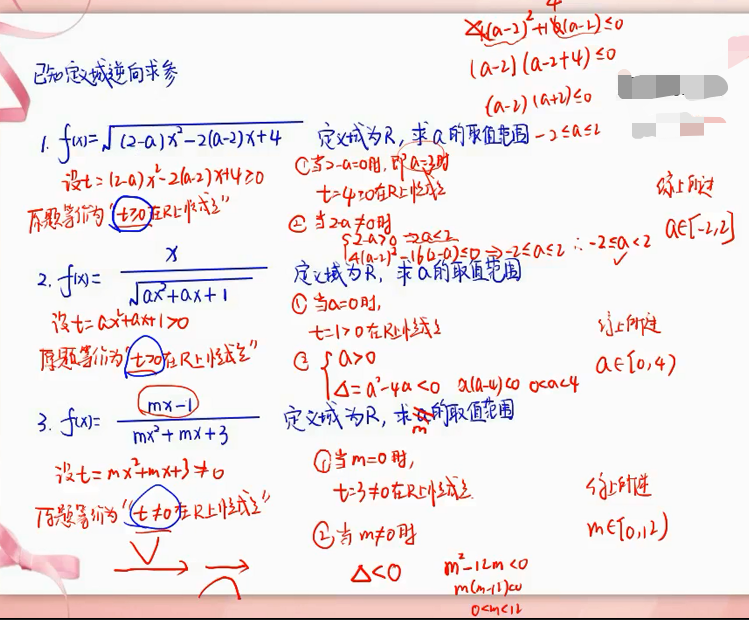 4
4(a-2)²+16(a-2)≤0
(a-2)(a-2+4)≤0
(a-2)(a+2)≤0
-2≤a≤2
已知定义域逆向求参
1. f(x)=√((2-a)x²-2(a-2)x+4) 定义域为R,求a的取值范围
设t=(2-a)x²-2(a-2)x+4≥0
原题等价为"t≥0在R上恒成立"
①当2-a=0时,即a=2时
t=4≥0在R上恒成立
②当2-a≠0时
{2-a>0 ⇒a<2
4(a-2)²-16(2-a)≤0 ⇒-2≤a≤2 ∴-2≤a<2
综上所述
a∈[-2,2]
2. f(x)= x/√(ax²+ax+1) 定义域为R,求a的取值范围
设t=ax²+ax+1>0
原题等价为"t>0在R上恒成立"
①当a=0时,
t=1>0在R上恒成立
② {a>0
Δ=a²-4a<0 a(a-4)<0 0<a<4
综上所述
a∈[0,4)
3. f(x)= (mx-1)/(mx²+mx+3) 定义域为R,求a的取值范围
m
设t=mx²+mx+3≠0
原题等价为"t≠0在R上恒成立"
①当m=0时,
t=3≠0在R上恒成立
②当m≠0时
Δ<0 m²-12m<0
m(m-12)<0
0<m<12
综上所述
m∈[0,12)